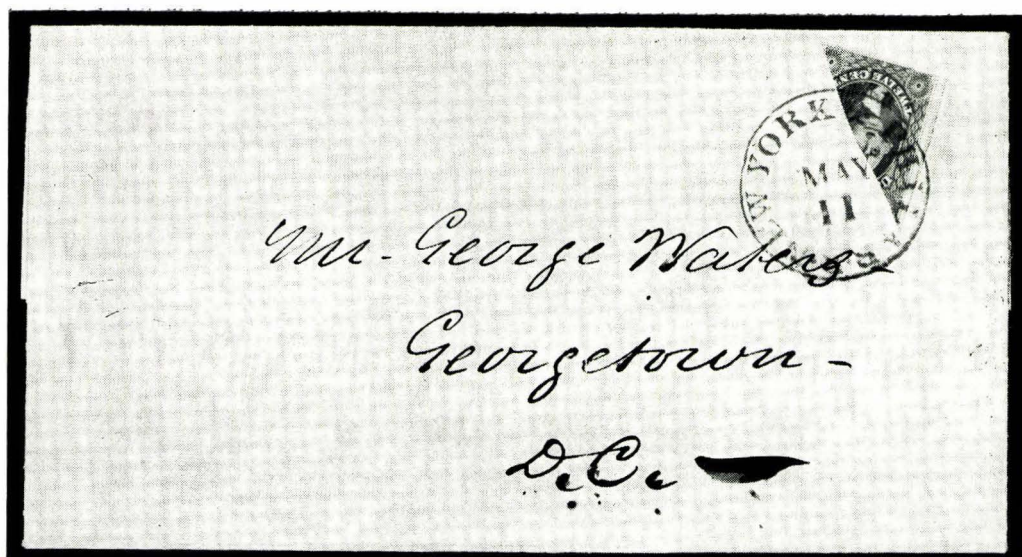 NEW YORK & PHILA
MAY
11
Mr. George Waters
Georgetown -
D.C.